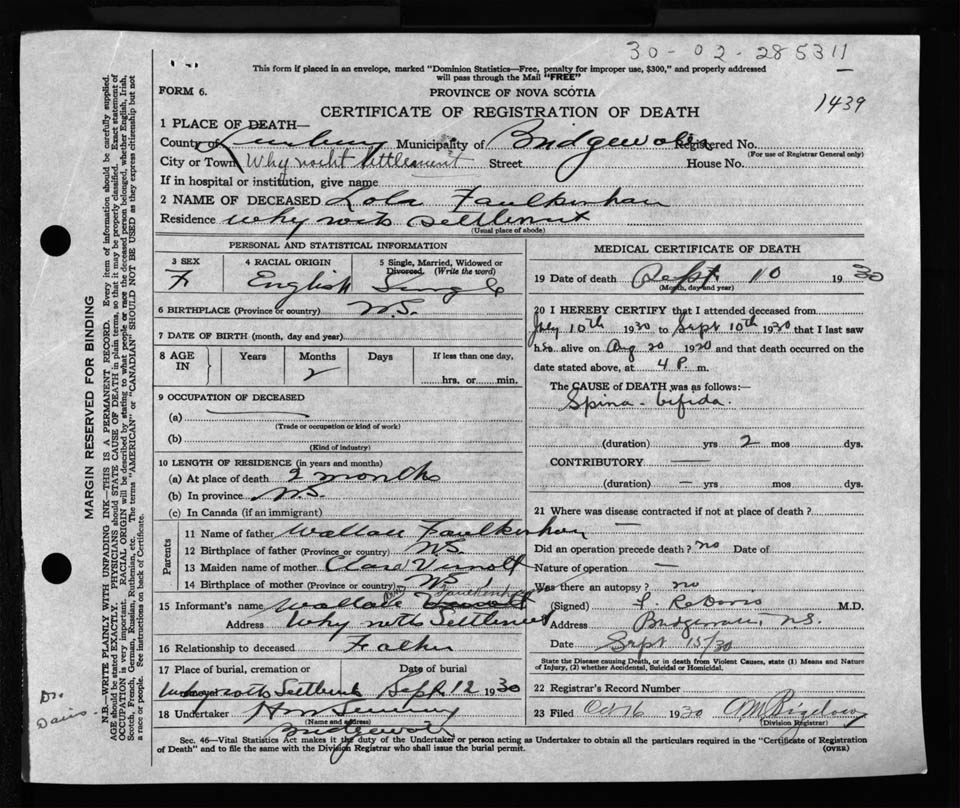 30-02-285311
This form if placed in an envelope, marked "Dominion Statistics—Free, penalty for improper use, $300," and properly addressed
will pass through the Mail "FREE"
FORM 6.
PROVINCE OF NOVA SCOTIA
CERTIFICATE OF REGISTRATION OF DEATH
1439
1 PLACE OF DEATH—
County of Lunenburg Municipality of Bridgewater Registered No.
(For use of Registrar General only)
City or Town Whynocht Settlement Street House No.
If in hospital or institution, give name
2 NAME OF DECEASED Lola Faulkenhan
Residence Why nots Settlement
(Usual place of abode)
PERSONAL AND STATISTICAL INFORMATION
3 SEX
F
4 RACIAL ORIGIN
English
5 Single, Married, Widowed or
Divorced. (Write the word)
Single
6 BIRTHPLACE (Province or country) N.S.
7 DATE OF BIRTH (month, day and year)
8 AGE
IN
Years
Months
2
Days
If less than one day,
hrs. or min.
9 OCCUPATION OF DECEASED
(a)
(Trade or occupation or kind of work)
(b)
(Kind of industry)
10 LENGTH OF RESIDENCE (in years and months)
(a) At place of death 2 months
(b) In province N.S.
(c) In Canada (if an immigrant)
Parents
11 Name of father Wallace Faulkenhan
12 Birthplace of father (Province or country) N.S.
13 Maiden name of mother Clara
14 Birthplace of mother (Province or country) N.S.
15 Informant's name Wallace Faulkenhan
Address Why nots Settlement
16 Relationship to deceased Father
17 Place of burial, cremation or
Date of burial
Settlement Sept. 12 1930
18 Undertaker
(Name and address)
Bridgewater
MEDICAL CERTIFICATE OF DEATH
19 Date of death Sept. 10 1930
(Month, day and year)
20 I HEREBY CERTIFY that I attended deceased from
July 10th 1930 to Sept 10th 1930 that I last saw
h alive on Aug 20 1930 and that death occurred on the
date stated above, at 4 P. m.
The CAUSE of DEATH was as follows:—
Spina-bifida.
(duration) yrs 2 mos dys.
CONTRIBUTORY —
(duration) — yrs mos dys.
21 Where was disease contracted if not at place of death?
—
Did an operation precede death? no Date of
Nature of operation —
Was there an autopsy? no
(Signed) M.D.
Address Bridgewater, N.S.
Date Sept 15/30
State the Disease causing Death, or in death from Violent Causes, state (1) Means and Nature
of Injury, (2) whether Accidental, Suicidal or Homicidal.
22 Registrar's Record Number
23 Filed Oct 16 1930 Bigelow
(Division Registrar)
Sec. 46—Vital Statistics Act makes it the duty of the Undertaker or person acting as Undertaker to obtain all the particulars required in the "Certificate of Registration
of Death" and to file the same with the Division Registrar who shall issue the burial permit.
(OVER)
MARGIN RESERVED FOR BINDING
N.B.—WRITE PLAINLY WITH UNFADING INK—THIS IS A PERMANENT RECORD. Every item of information should be carefully supplied.
AGE should be stated EXACTLY. PHYSICIANS should STATE CAUSE OF DEATH in plain terms, so that it may be properly classified. Exact statement of
OCCUPATION is very important. RACIAL ORIGIN will be described by stating to what people or race the deceased person belonged, whether English, Irish,
Scotch, French, German, Russian, Ruthenian, etc. The terms "AMERICAN" or "CANADIAN" SHOULD NOT BE USED as they express citizenship but not
a race or people. See instructions on back of Certificate.
Dr.
Davis.